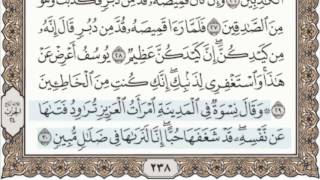 الْكَٰذِبِينَ ﴿٢٦﴾ وَإِن كَانَ قَمِيصُهُۥ قُدَّ مِن دُبُرٍ فَكَذَبَتْ وَهُوَ
مِنَ الصَّٰدِقِينَ ﴿٢٧﴾ فَلَمَّا رَءَا قَمِيصَهُۥ قُدَّ مِن دُبُرٍ قَالَ إِنَّهُۥ
مِن كَيْدِكُنَّ ۖ إِنَّ كَيْدَكُنَّ عَظِيمٌ ﴿٢٨﴾ يُوسُفُ أَعْرِضْ عَنْ
هَٰذَا ۚ وَاسْتَغْفِرِي لِذَنبِكِ ۖ إِنَّكِ كُنتِ مِنَ الْخَاطِـِٔينَ
﴿٢٩﴾ وَقَالَ نِسْوَةٌ فِي الْمَدِينَةِ امْرَأَتُ الْعَزِيزِ تُرَٰوِدُ فَتَىٰهَا
عَن نَّفْسِهِۦ ۖ قَدْ شَغَفَهَا حُبًّا ۖ إِنَّا لَنَرَىٰهَا فِي ضَلَٰلٍ مُّبِينٍ ﴿٣٠﴾
٢٣٨